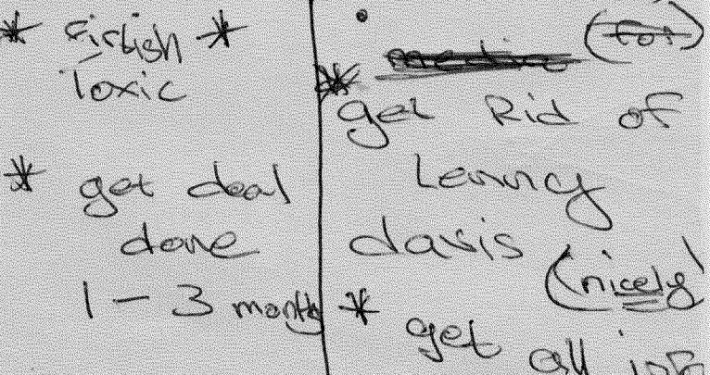 * Finish *
Toxic
* get deal
done
1 - 3 months
* get Rid of
Lenny
davis
(nicely)
* get all